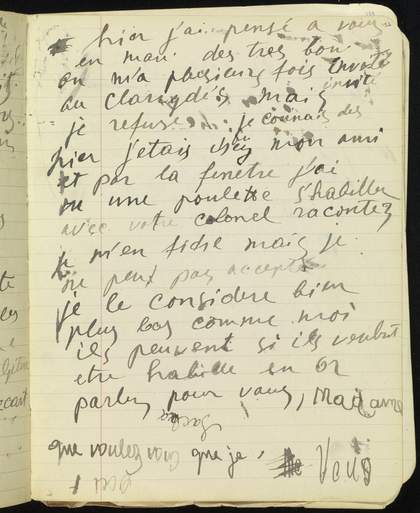 hier j'ai pensé a vous
en man. des tres bon
on m'a plusieurs fois invité
au Clarydés mais
je refuse. je connais des
hier j'etais chez mon ami
et par la fenetre j'ai
vu une poulette s'habiller
avec votre colonel racontez
je m'en fiche mais je
ne peux pas accepter
je le considere bien
plus bas comme moi
ils peuvent si ils veulent
etre habille en or
parlez pour vous, Madame
que voulez vous que je. Vous